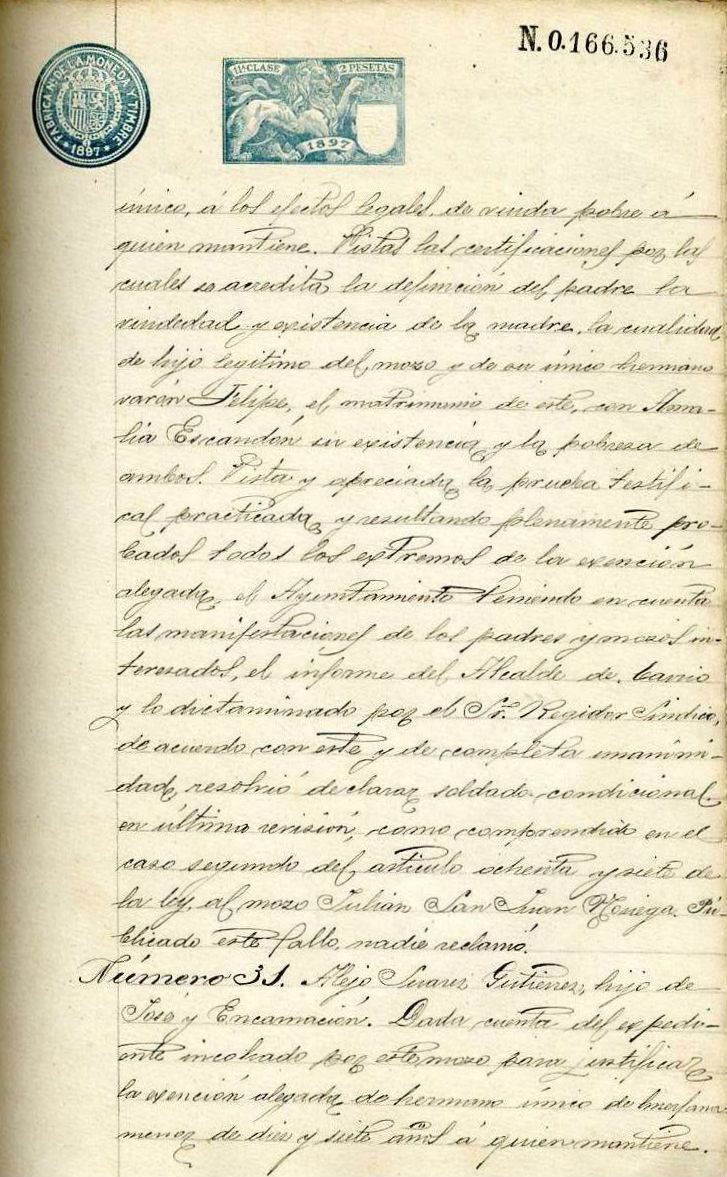 N. 0.166.536
FÁBRICA N. DE LA MONEDA Y TIMBRE
* 1897 *
11ª CLASE 2 PESETAS
1897
único, á los efectos legales, de viuda pobre á
quien mantiene. Vistas las certificaciones por las
cuales se acredita la defunción del padre la
viudedad y existencia de la madre, la cualidad
de hijo legítimo del mozo y de su único hermano
varón Felipe, el matrimonio de este, con Ama-
lia Escandón su existencia y la pobreza de
ambos. Vista y apreciada la prueba testifi-
cal practicada y resultando plenamente pro-
bados todos los extremos de la exención
alegada, el Ayuntamiento teniendo en cuenta
las manifestaciones de los padres y mozos in-
teresados, el informe del Alcalde de barrio
y lo dictaminado por el Sr. Regidor Síndico,
de acuerdo con este y de completa unanimi-
dad, resolvió declarar soldado condicional
en última revisión, como comprendido en el
caso segundo del artículo ochenta y siete de
la ley, al mozo Julian San Juan Noriega. Pú-
blicado este fallo nadie reclamó.
Número 31. Alejo Suarez Gutierrez, hijo de
José y Encarnación. Dada cuenta del expedi-
ente incohado por este mozo para justificar
la exención alegada de hermano único de huérfana
menor de diez y siete años á quien mantiene.